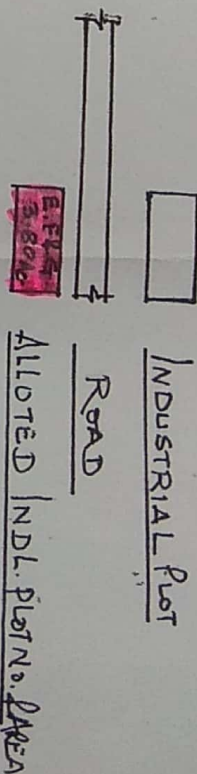 INDUSTRIAL PLOT
ROAD
ALLOTED INDL. PLOT NO. & AREA